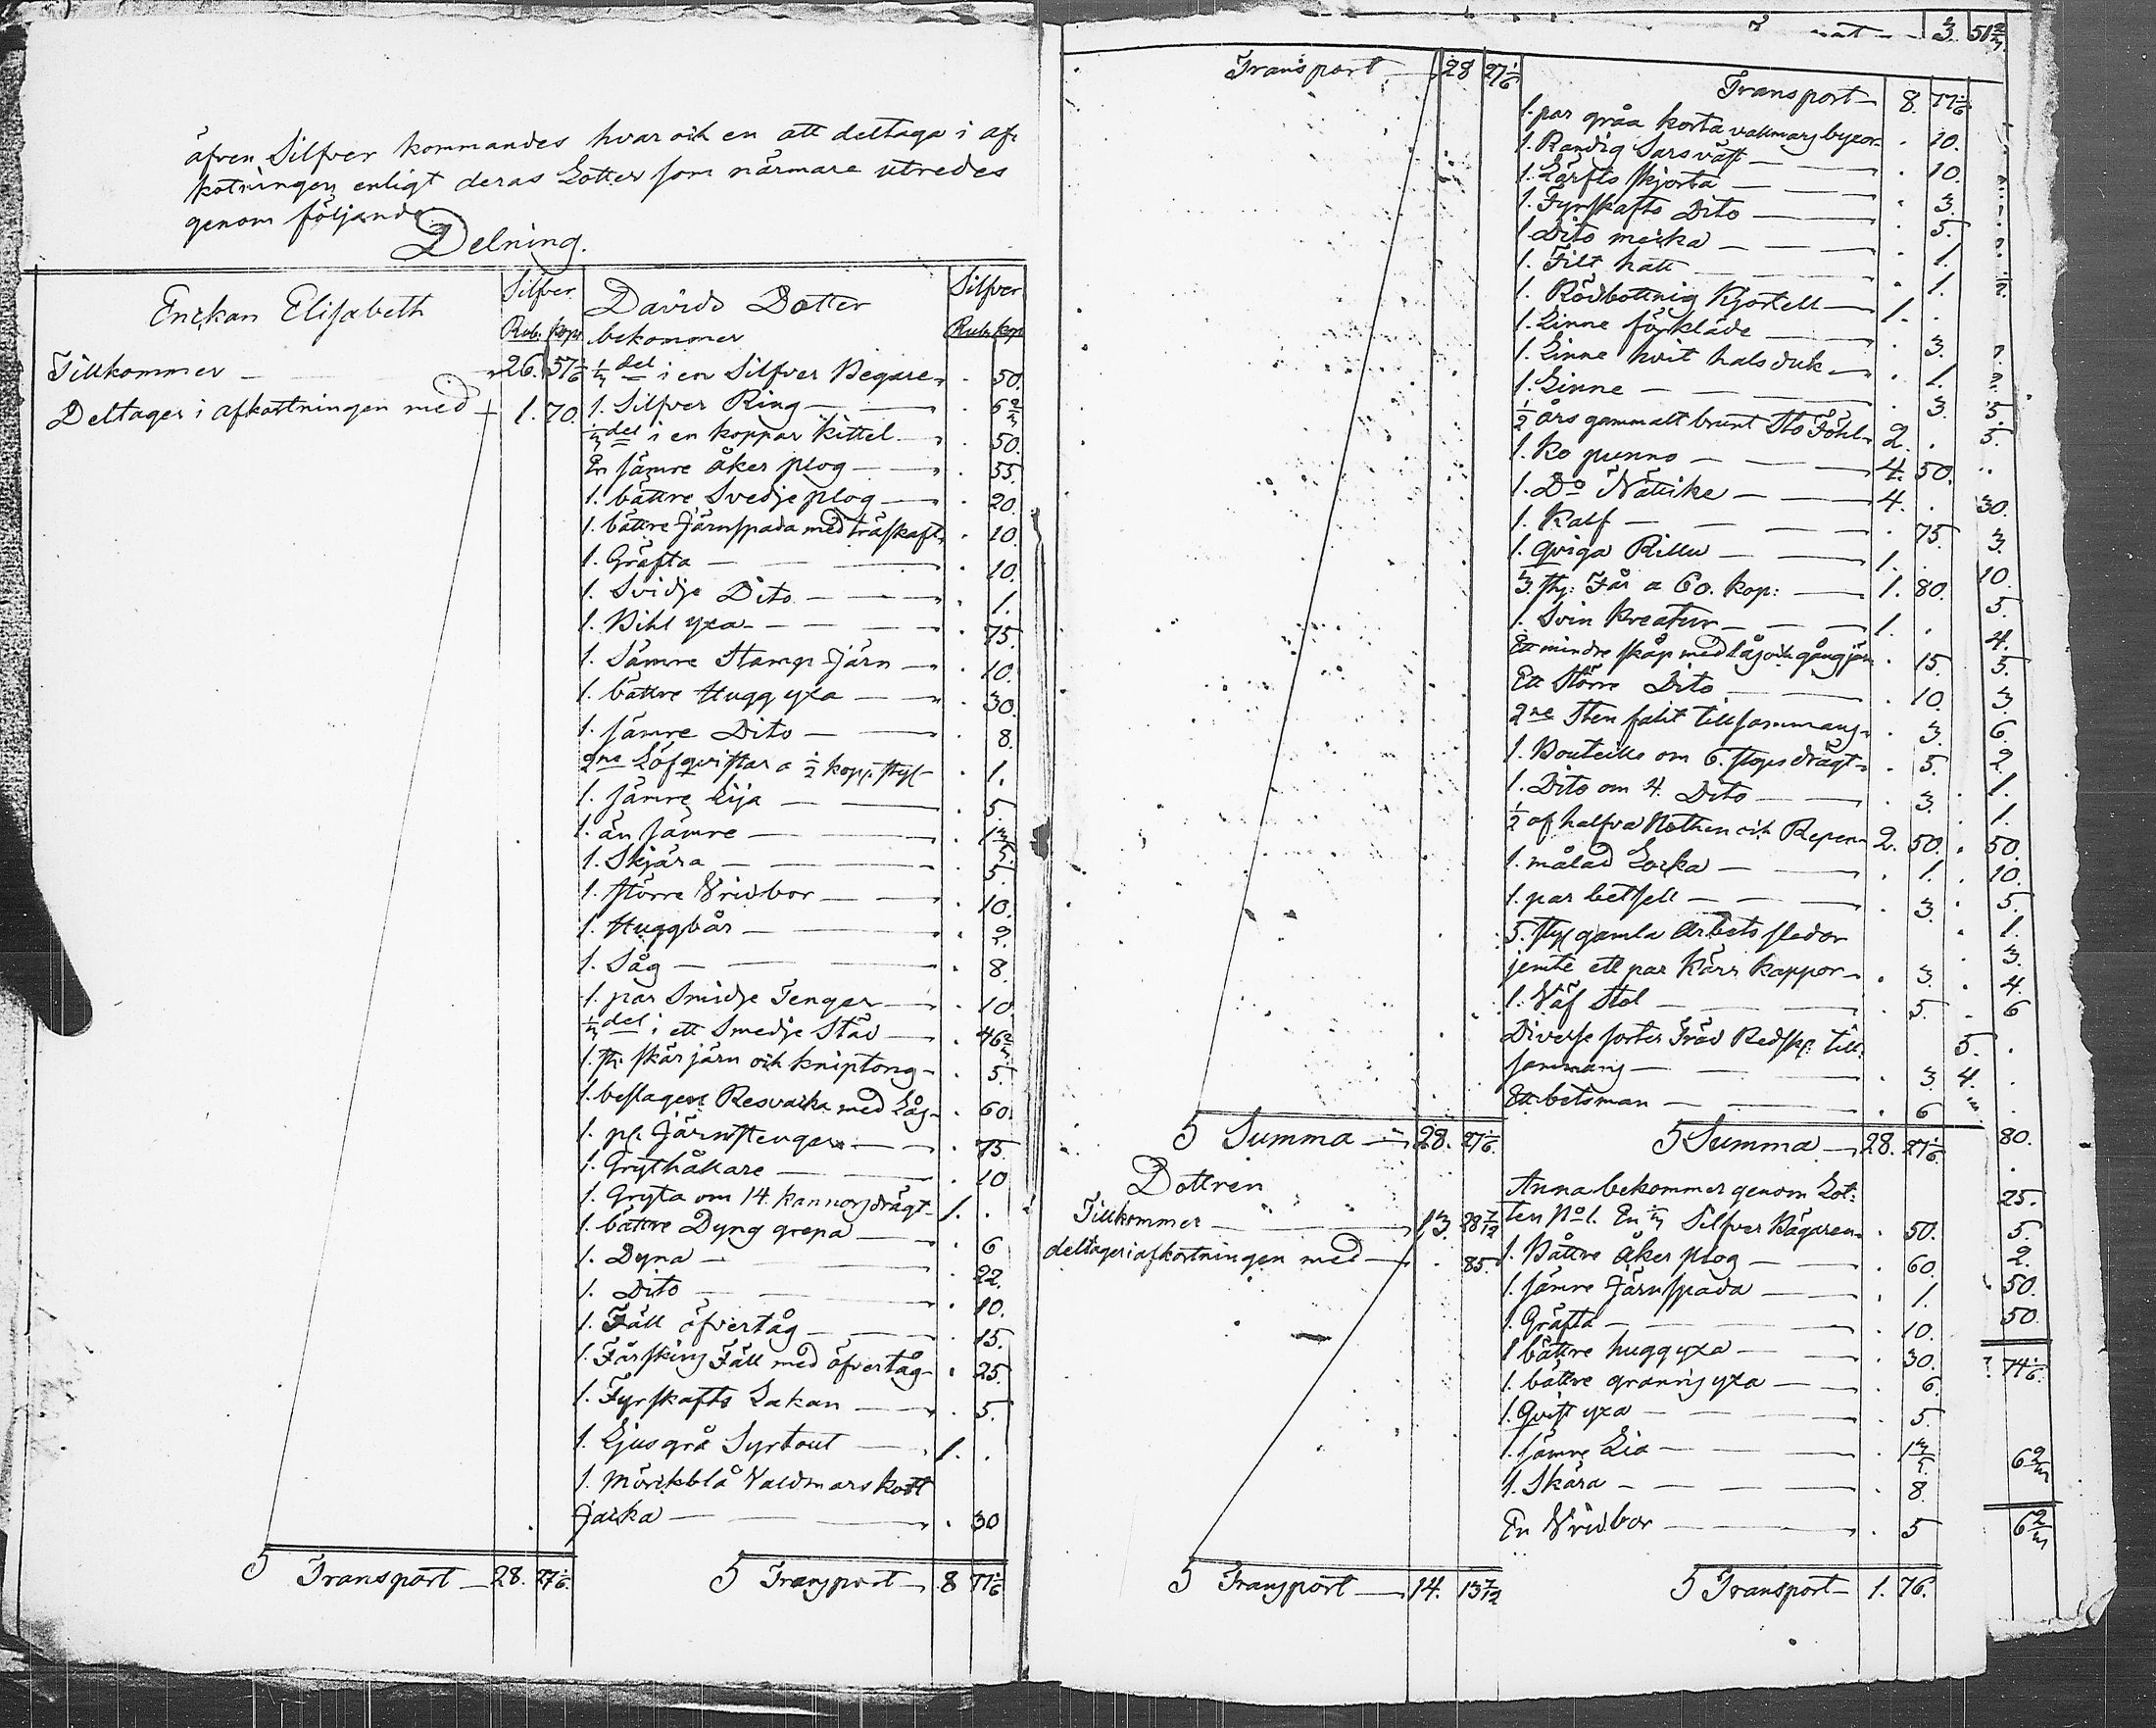 äfven Silfver kommandes hvar och en att deltaga i af-
kotningen enligt deras Lotter som närmare utredes
genom följande
Delning.
Enckan Elisabeth
Silfver
Rub. kop
Tillkommer — 26. 57 1/6
Deltager i afkortningen med — 1. 70.
5 Transport — 28. 27 1/6.
Davids Dotter
bekommer
Silfver
Rub. kop
1/3 del i en Silfver Begare — . 50.
1. Silfver Ring — . 6 2/3
1/3 del i en koppar kittel — . 50.
En sämre åker plog — . 55.
1. bättre Svedje plog — . 20.
1. bättre Järnspada med träskaft . 10.
1. Gräfta — . 10.
1. Svidje Dito — . 1.
1. Bihl yxa — . 15.
1. Sämre Stamp Järn — . 10.
1. bättre Hugg yxa — . 30.
1. sämre Dito — . 8.
2ne Löfqvistar a 1/2 kop. styk — . 1.
1. sämre Lija — . 5.
1. än sämre — . 1 3/5
1. Skjära — . 5.
1. större Vridbor — . 10.
1. Huggbår — . 2.
1. Såg — . 8.
1. par Smidje Tenger — . 10.
1/3 del i ett Smedje Städ — . 46 2/3.
1. st. skär järn och kniptong — . 5.
1. beslagen Resvacka med Lås — . 60.
1. pr. Järnstenger — . 75.
1. Grythållare — . 10
1. Gryta om 14. kannors drägt — 1. .
1. bättre Dyng grepa — . 6
1. Dyna — . 22.
1. Dito — . 10.
1. Fäll öfvertåg — . 15.
1. Fårskins Fäll med öfvertåg — . 25.
1. Fyrskafts Lakan — . 5.
1. Ljusgrå Syrtout — 1. .
1. Mörckblå Valdmars kort
Jacka — . 30
5 Transport — 8 77 1/6
Transport — 28 27 1/6
5 Summa — 28. 27 1/6.
Dottren
Tillkommer — 13. 28 7/12
deltager i afkortningen med — . 85.
5 Transport — 14. 13 7/12
3. 51 2/3.
Transport — 8. 77 1/6
1. par gråa korta vallmars byxor — . 10.
1. Randig Sars väst — . 10.
1. Lärfts skjorta — . 3.
1. Fyrskafts Dito — . 5.
1. Dito — . 1.
1. Filt hatt — . 1.
1. Rödbottnig Kjortell — 1. .
1. Linne förkläde — . 3.
1. Linne hvit hals duk — . 1.
1. Linne — . 3.
1/2 års gammalt brunt Sto Föhl — 2. .
1. Ko punno — 4. 50.
1. Do Näticke — 4. .
1. Kalf — . 75.
1. Qviga Rillu — 1. .
3. sty: Får a 60. kop: — 1. 80.
1. Svin kreatur — 1. .
Ett mindre skåp med lås och gångjärn . 15.
Ett större Dito — . 10.
2ne Sten falit tillsammans — . 3.
1. Bouteille om 6. stops drägt — . 5.
1. Dito om 4. Dito — . 3.
1/2 af halfva Nothen och Repen — 2. 50.
1. målad Locka — . 1.
1. par betsell — . 3.
5. sty gamla Arbets slädor
jemte ett par Kärr kappor — . 3.
1. Väf Stol — . 5.
Diverse sorter Träd Redsk: till
sammans — . 3
Ett betsman — . 6
5 Summa — 28. 27 1/6.
Anna bekommer genom Lot:
ten No 1. En 1/3 Silfver Bägaren — . 50.
1. Bättre åker plog — . 60.
1. sämre Järnspada — . 1.
1. Gräfta — . 10.
1 bättre huggyxa — . 30.
1. bättre yxa — . 6.
1. Qvist yxa — . 5.
1. sämre Lia — . 1 3/5.
1. Skära — . 8.
En Vridbor — . 5
5 Transport — 1. 76.
5.
5.
30.
3.
10.
5.
4.
5.
3.
6.
2.
1.
1.
50.
10.
5.
1.
3.
4.
6
5. .
4. .
80.
25.
5.
2.
50.
50.
74 1/6.
6 2/3
6 2/3